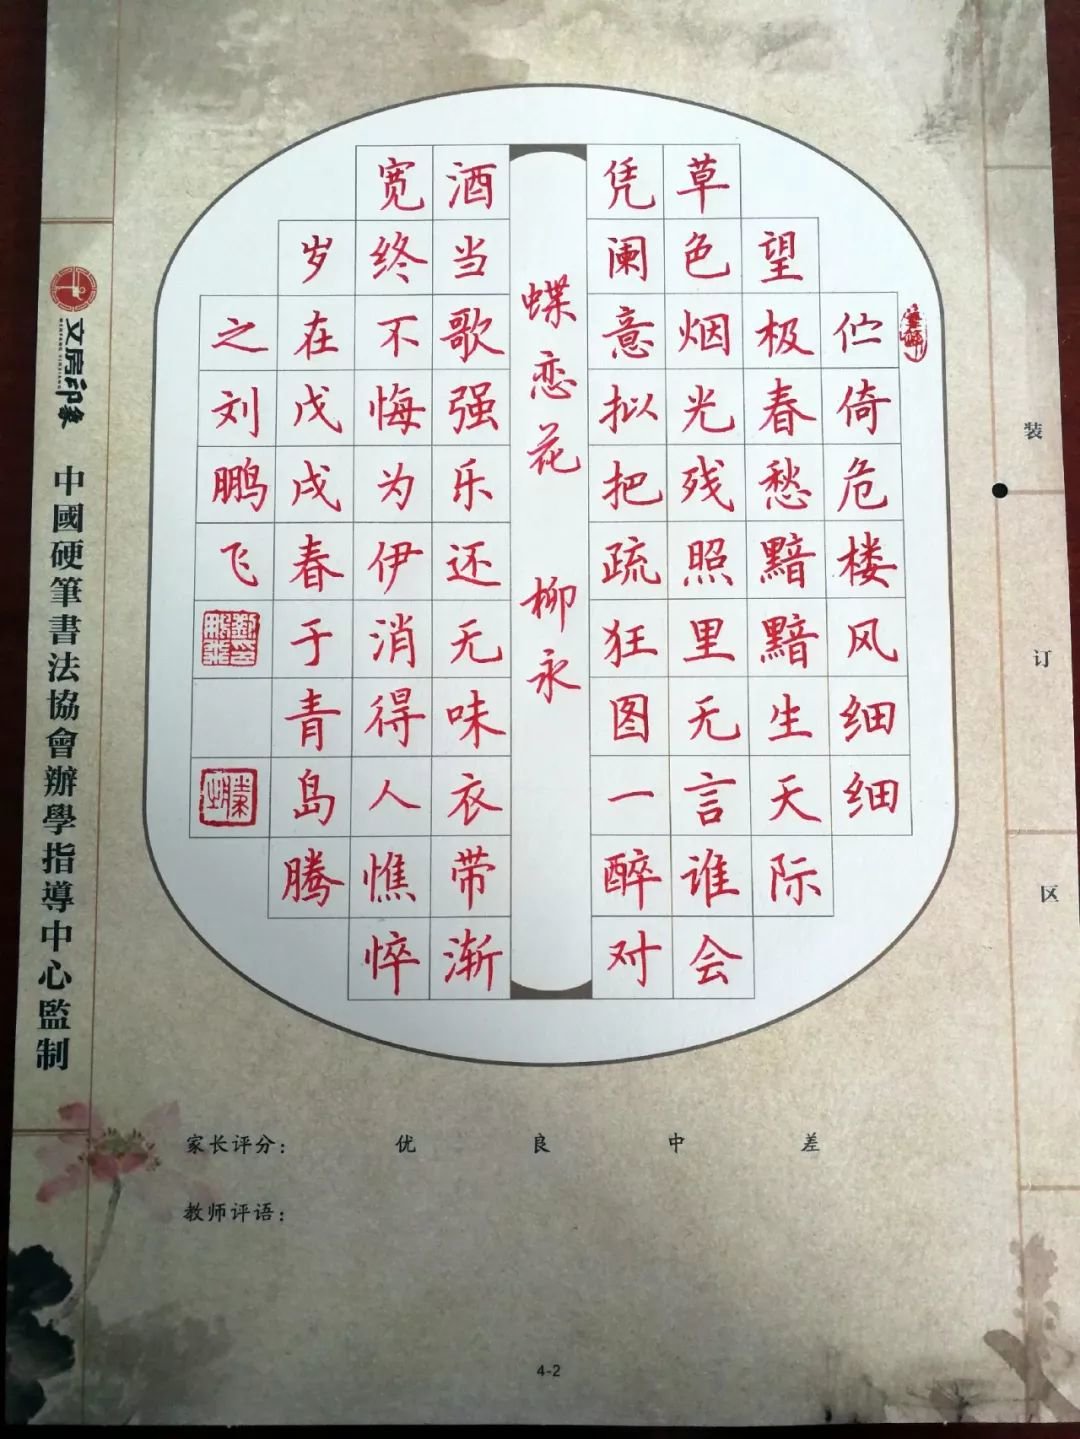 伫倚危楼风细细
望极春愁黯黯生天际
草色烟光残照里无言谁会
凭阑意拟把疏狂图一醉对
蝶恋花 柳永
酒当歌强乐还无味衣带渐
宽终不悔为伊消得人憔悴
岁在戊戌春于青岛腾
之刘鹏飞
文房印象
中國硬筆書法協會辦學指導中心監制
装
订
区
家长评分： 优 良 中 差
教师评语：
4-2